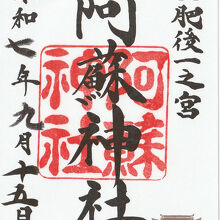 肥後一之宮
阿蘇神社
阿蘇
神社
令和七年九月十五日